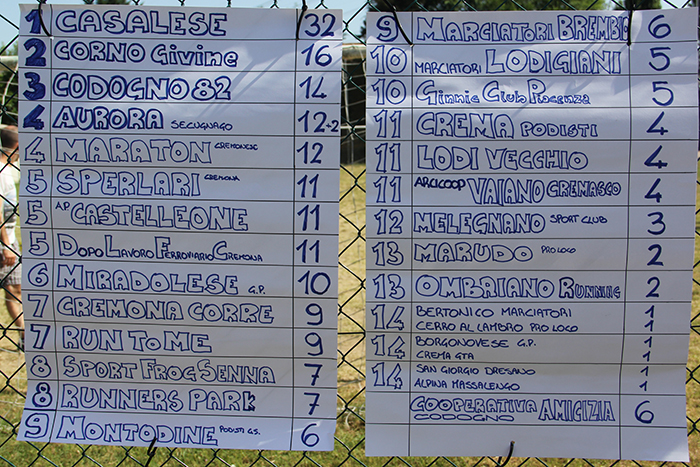 1 CASALESE 32
2 CORNO Givine 16
3 CODOGNO 82 14
4 AURORA SECUGNAGO 12-2
4 MARATON CREMONESE 12
5 SPERLARI CREMONA 11
5 A.P. CASTELLEONE 11
5 DOPO LAVORO FERROVIARIO CREMONA 11
6 MIRADOLESE G.P. 10
7 CREMONA CORRE 9
7 RUN TO ME 9
8 SPORT FROG SENNA 7
8 RUNNERS PARK 7
9 MONTODINE PODISTI G.S. 6
9 MARCIATORI BREMBIO 6
10 MARCIATORI LODIGIANI 5
10 GINNIC CLUB PIACENZA 5
11 CREMA PODISTI 4
11 LODI VECCHIO 4
11 ARCICOOP VAIANO CREMASCO 4
12 MELEGNANO SPORT CLUB 3
13 MARUDO PRO LOCO 2
13 OMBRIANO RUNNING 2
14 BERTONICO MARCIATORI 1
CERRO AL LAMBRO PRO LOCO 1
14 BORGONOVESE G.P. 1
CREMA GTA 1
14 SAN GIORGIO DRESANO 1
ALPINA MASSALENGO 1
COOPERATIVA AMICIZIA 6
CODOGNO